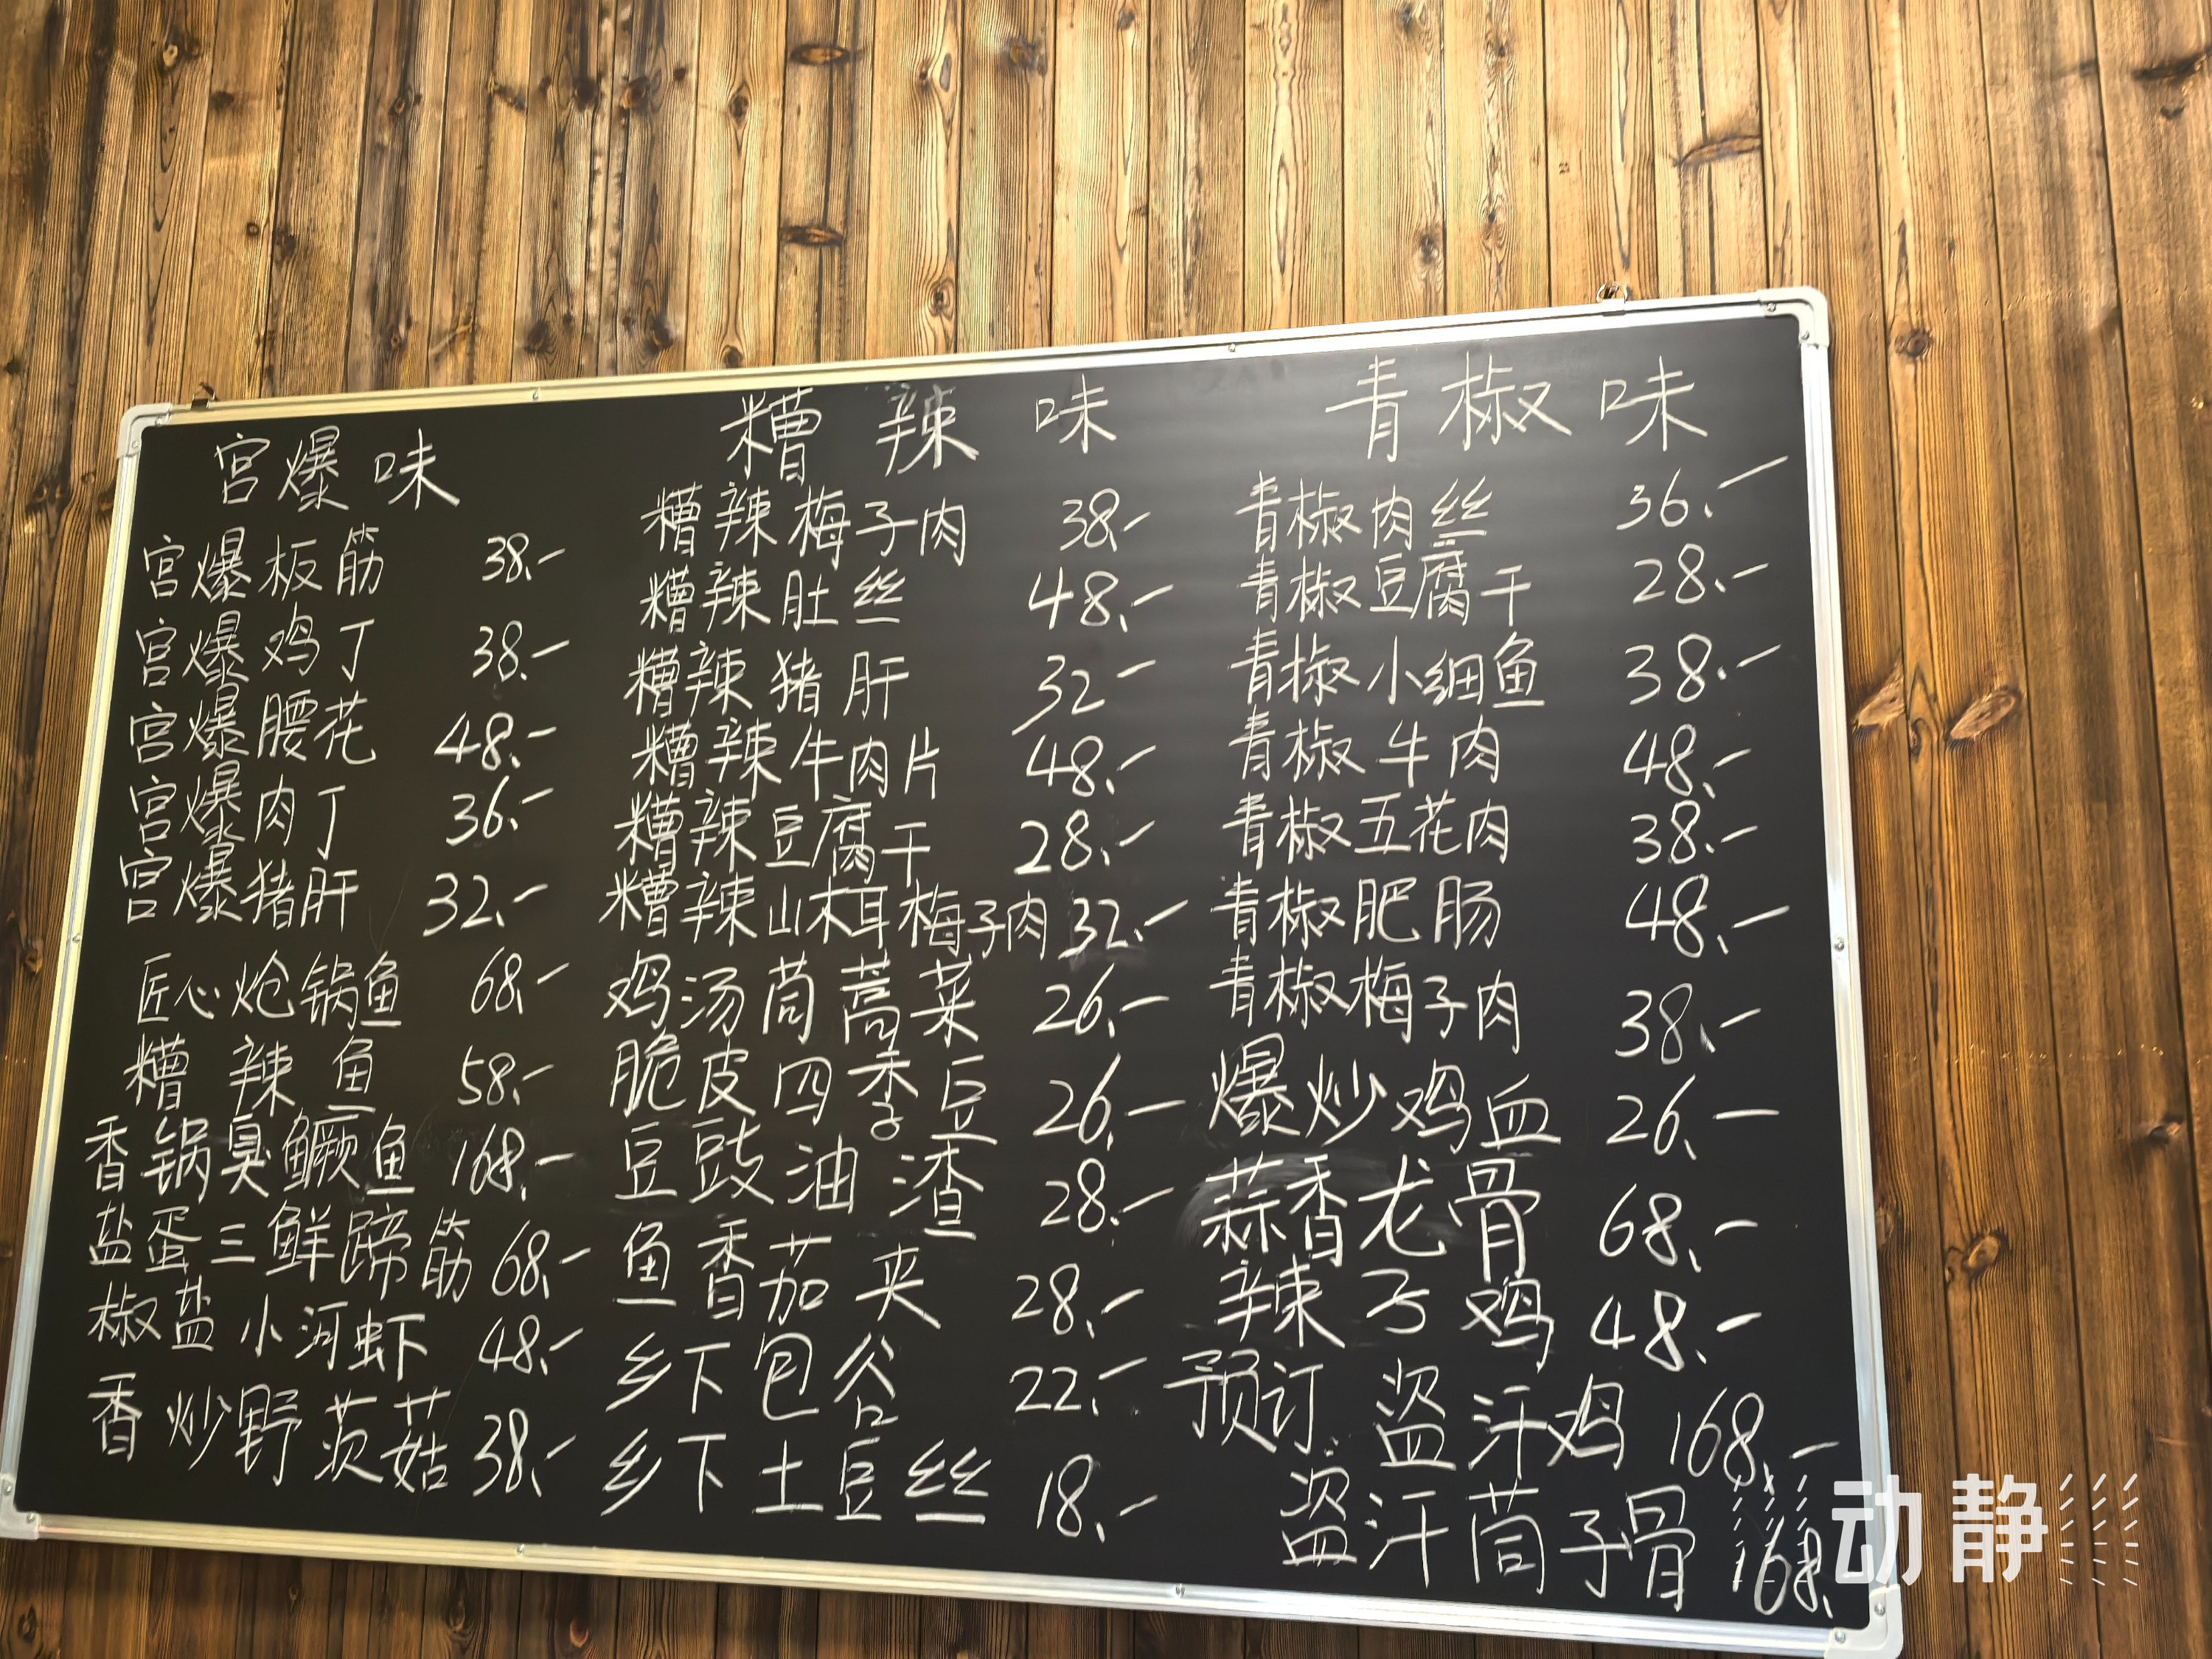 宫爆味
宫爆板筋 38.-
宫爆鸡丁 38.-
宫爆腰花 48.-
宫爆肉丁 36.-
宫爆猪肝 32.-
匠心炝锅鱼 68.-
糟辣鱼 58.-
香锅臭鳜鱼 168.-
盐蛋三鲜蹄筋 68.-
椒盐小河虾 48.-
香炒野茨菇 38.-
糟辣味
糟辣梅子肉 38.-
糟辣肚丝 48.-
糟辣猪肝 32-
糟辣牛肉片 48.-
糟辣豆腐干 28.-
糟辣山木耳梅子肉 32.-
鸡汤茼蒿菜 26.-
脆皮四季豆 26.-
豆豉油渣 28.-
鱼香茄夹 28.-
乡下包谷 22.-
乡下土豆丝 18.-
青椒味
青椒肉丝 36.-
青椒豆腐干 28.-
青椒小细鱼 38.-
青椒牛肉 48.-
青椒五花肉 38.-
青椒肥肠 48.-
青椒梅子肉 38.-
爆炒鸡血 26.-
蒜香龙骨 68.-
辣子鸡 48.-
预订 盗汗鸡 168.-
盗汗茼子骨 168.
动静